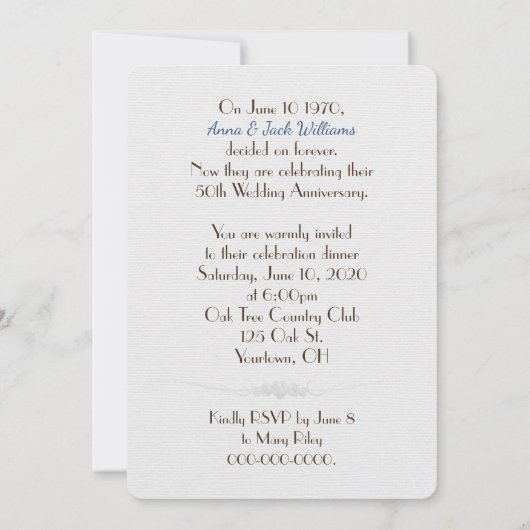 On June 10 1970,
Anna & Jack Williams
decided on forever.
Now they are celebrating their
50th Wedding Anniversary.
You are warmly invited
to their celebration dinner
Saturday, June 10, 2020
at 6:00pm
Oak Tree Country Club
125 Oak St.
Yourtown, OH
Kindly RSVP by June 8
to Mary Riley
000-000-0000.